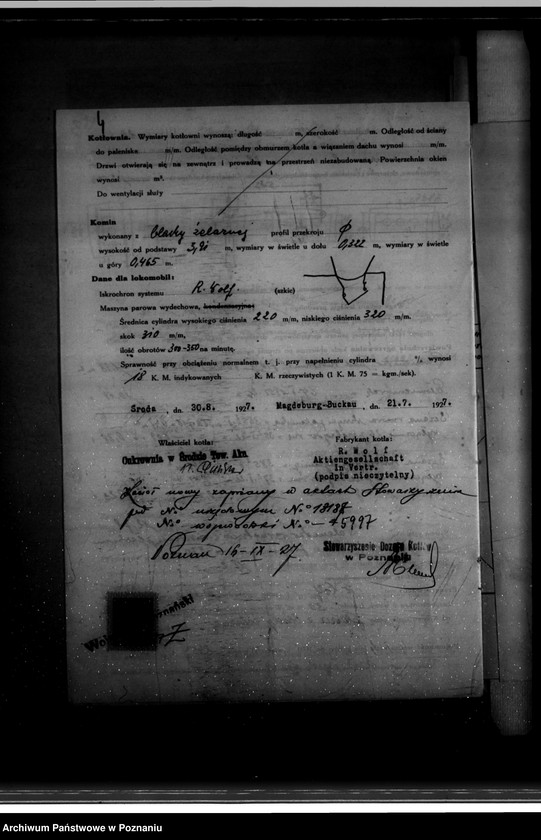 4
Kotłownia. Wymiary kotłowni wynoszą: długość m, szerokość m. Odległość od ściany
do paleniska m/m. Odległość pomiędzy obmurzem kotła a wiązaniem dachu wynosi m/m.
Drzwi otwierają się na zewnątrz i prowadzą na przestrzeń niezabudowaną. Powierzchnia okien
wynosi m².
Do wentylacji służy
Komin
wykonany z blachy żelaznej profil przekroju φ
wysokość od podstawy m, wymiary w świetle u dołu 0,322 m, wymiary w świetle
u góry 0,465 m.
Dane dla lokomobil:
Iskrochron systemu R. Wolf. (szkic)
Maszyna parowa wydechowa, kondensacyjna
Średnica cylindra wysokiego ciśnienia 220 m/m, niskiego ciśnienia 320 m/m.
skok 310 m/m,
ilość obrotów 300-350 na minutę.
Sprawność przy obciążeniu normalnem t. j. przy napełnieniu cylindra % wynosi
18 K. M. indykowanych K. M. rzeczywistych (1 K. M. 75 = kgm./sek).
Środa, dn. 30.8. 1927. Magdeburg-Buckau, dn. 21.7. 1927.
Właściciel kotła: Fabrykant kotła:
Cukrownia w Środzie Tow. Akc.
R. Wolf
Aktiengesellschaft
in Vertr.
(podpis nieczytelny)
Kocioł nowy zapisany w aktach Stowarzyszenia
pod No urzędowym No 18187
No wojewódzki No 45997
Poznań 16-IX-27.
Stowarzyszenie Dozoru Kotłów
w Poznaniu
Archiwum Państwowe w Poznaniu